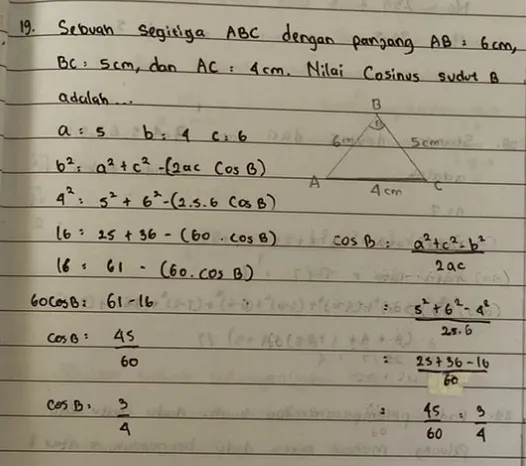 19. Sebuah segitiga ABC dengan panjang AB = 6cm,
BC = 5cm, dan AC = 4cm. Nilai Cosinus sudut B
adalah...
a = 5 b = 4 c = 6
b² = a² + c² - (2ac Cos B)
4² = 5² + 6² - (2.5.6 Cos B)
16 = 25 + 36 - (60 . cos B)
16 = 61 - (60. cos B)
60 cos B = 61 - 16
cos B = 45/60
cos B = 3/4
B
6cm 5cm
A C
4 cm
cos B = a² + c² - b² / 2ac
= 5² + 6² - 4² / 25.6
= 25 + 36 - 16 / 60
= 45/60 = 3/4